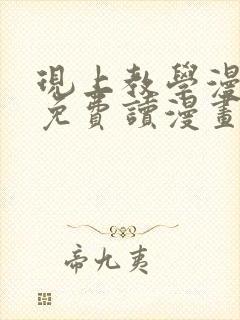 現上教學漫
免費讀漫畫
帝九夷